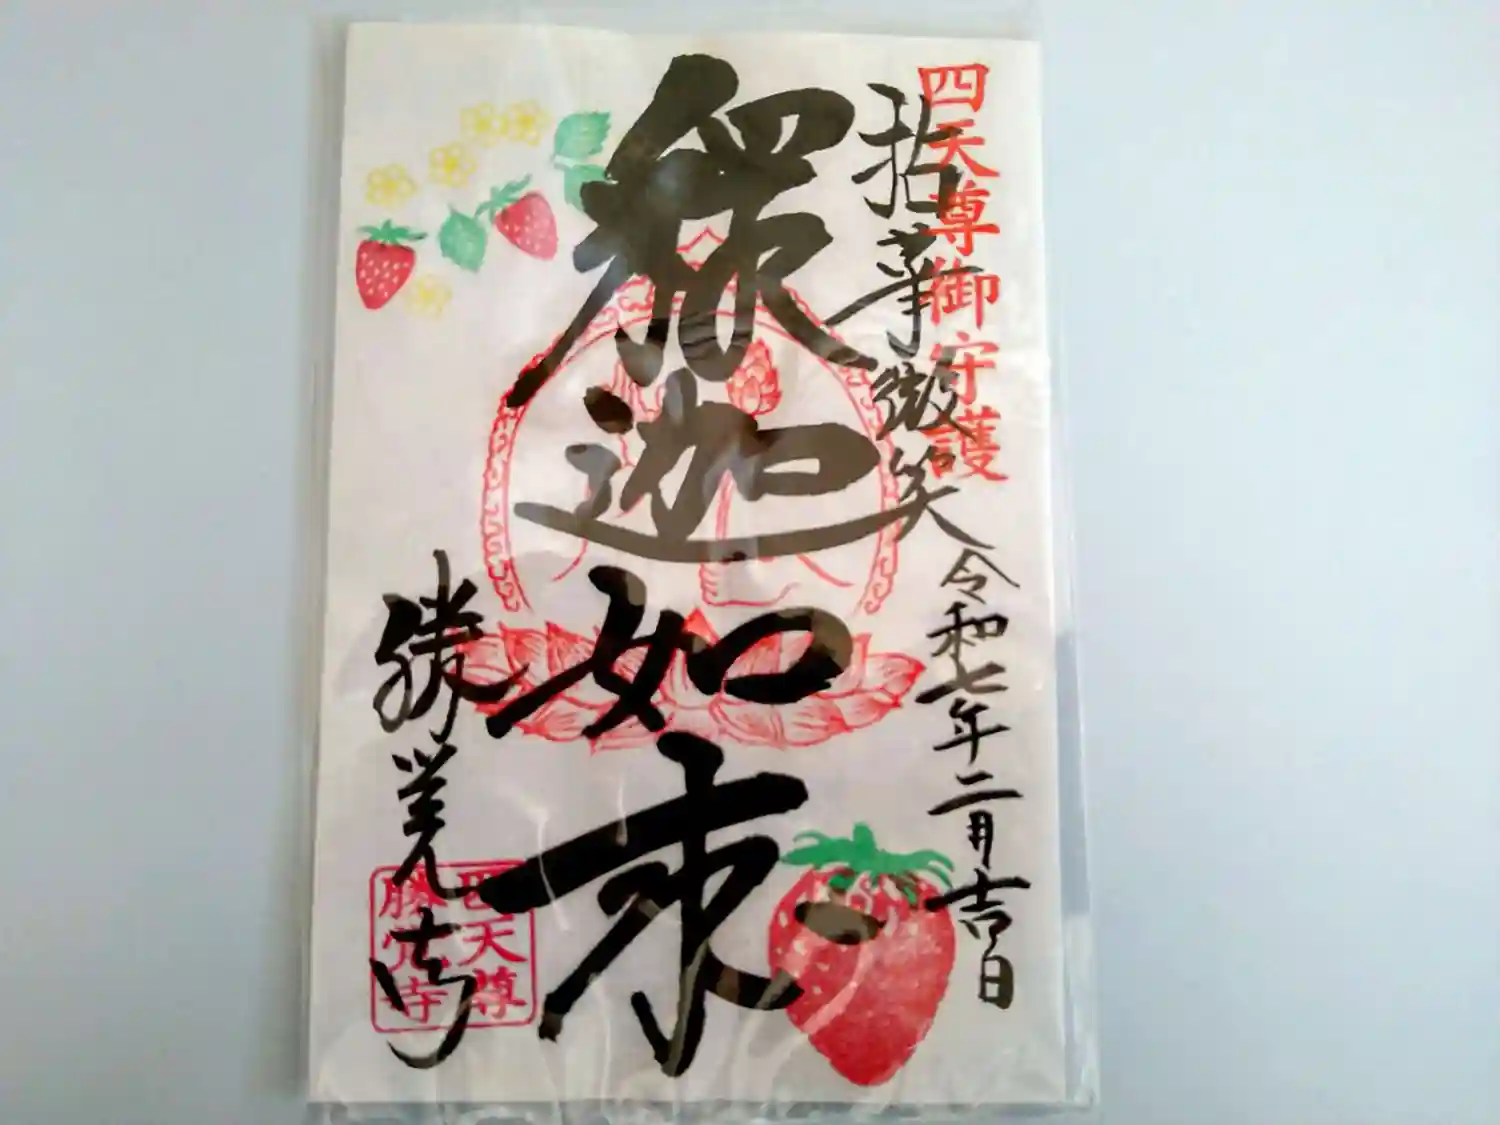 四天尊御守護
拈華微笑
令和七年二月吉日
釈迦如来
勝覚寺
四天尊
勝覚寺